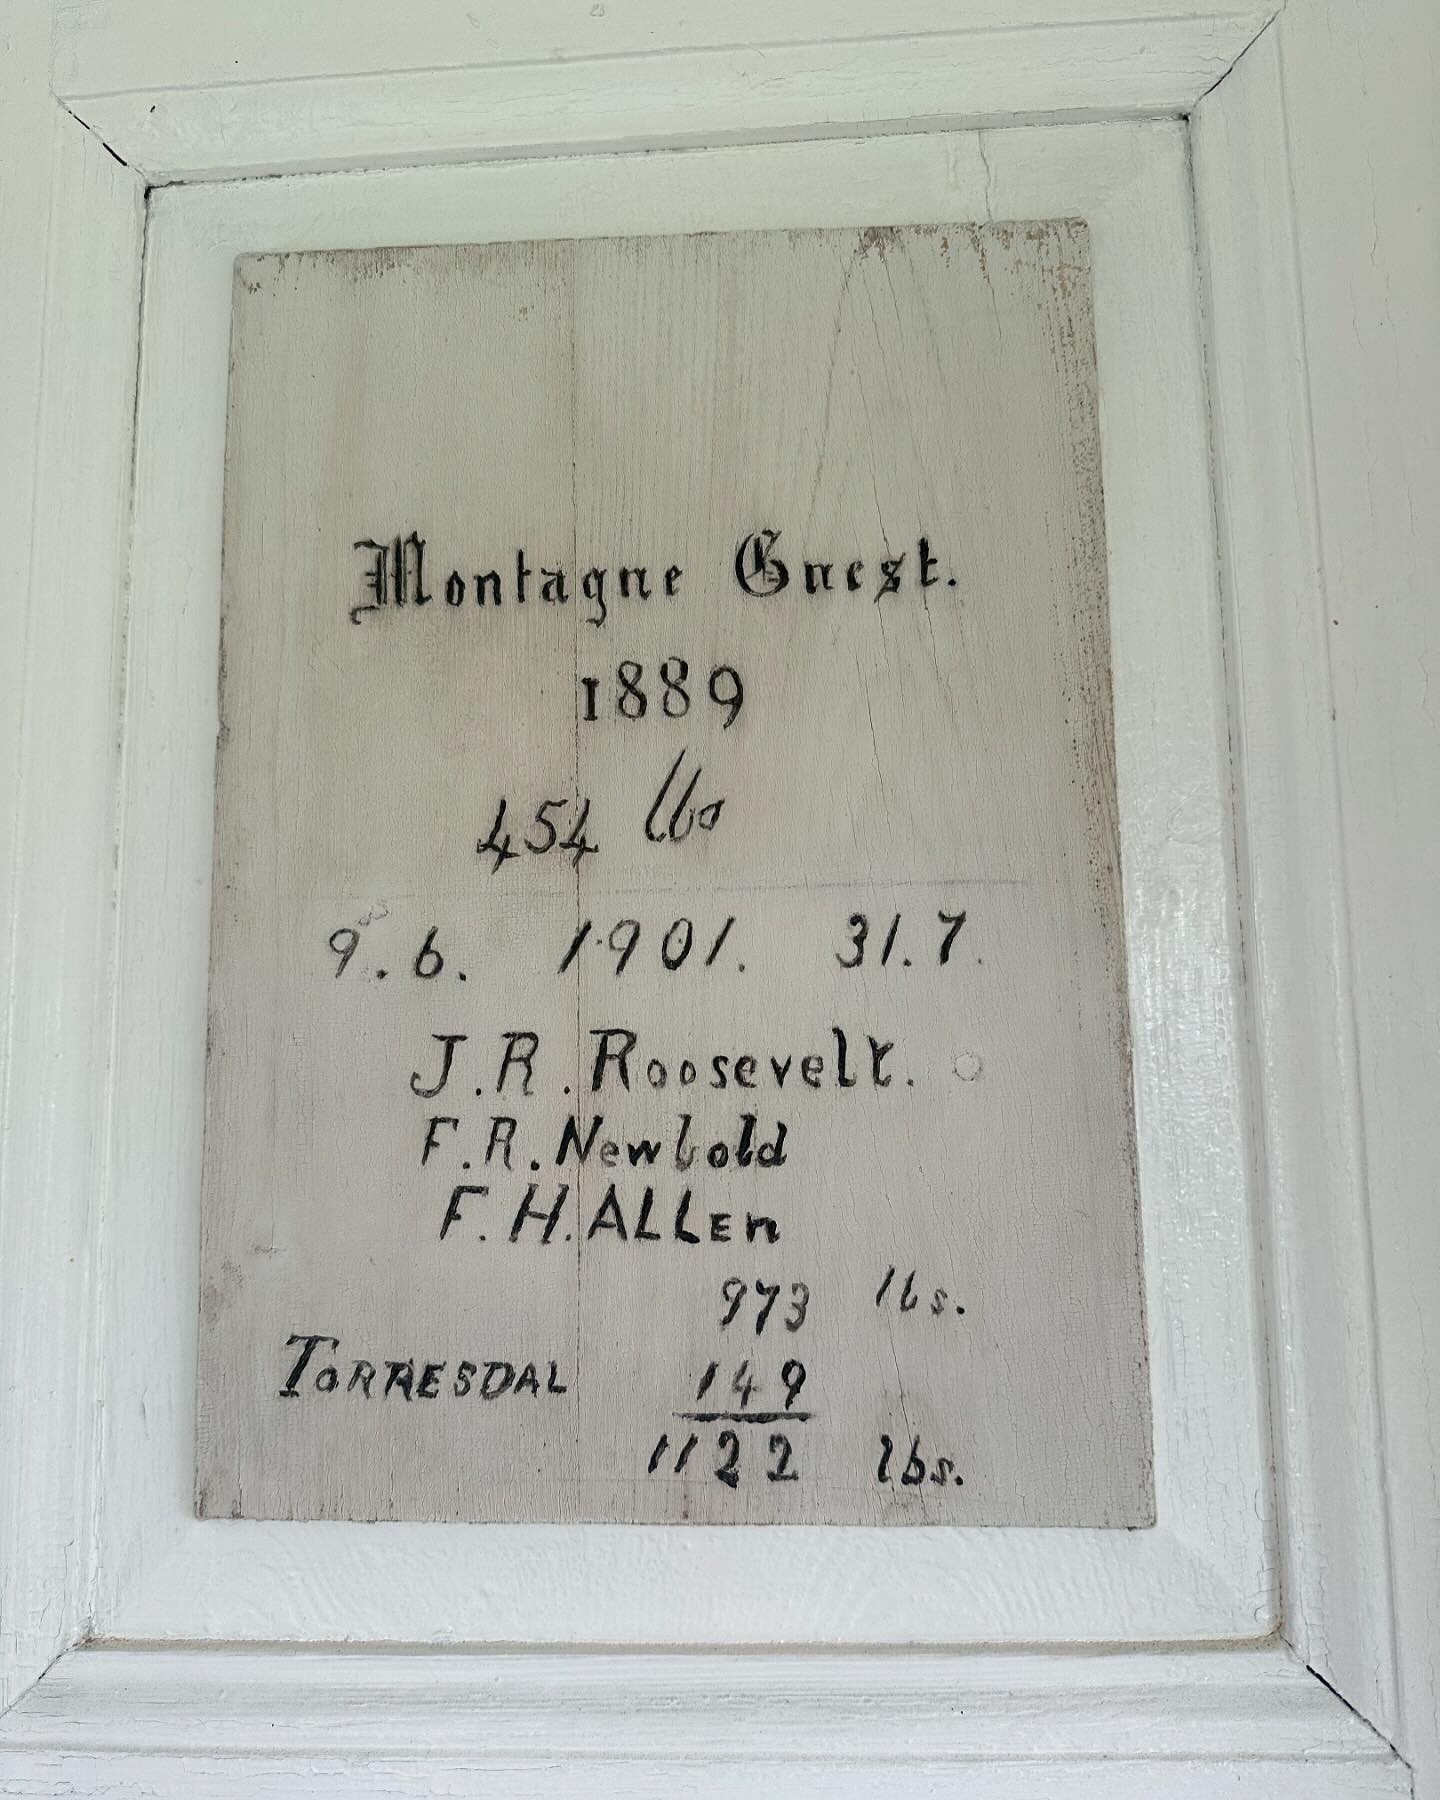 Montague Guest.
1889
454 lbs
9.6. 1901. 31.7.
J.R. Roosevelt.
F.R. Newbold
F.H. ALLEn
973 lbs.
TORRESDAL 149
1122 lbs.